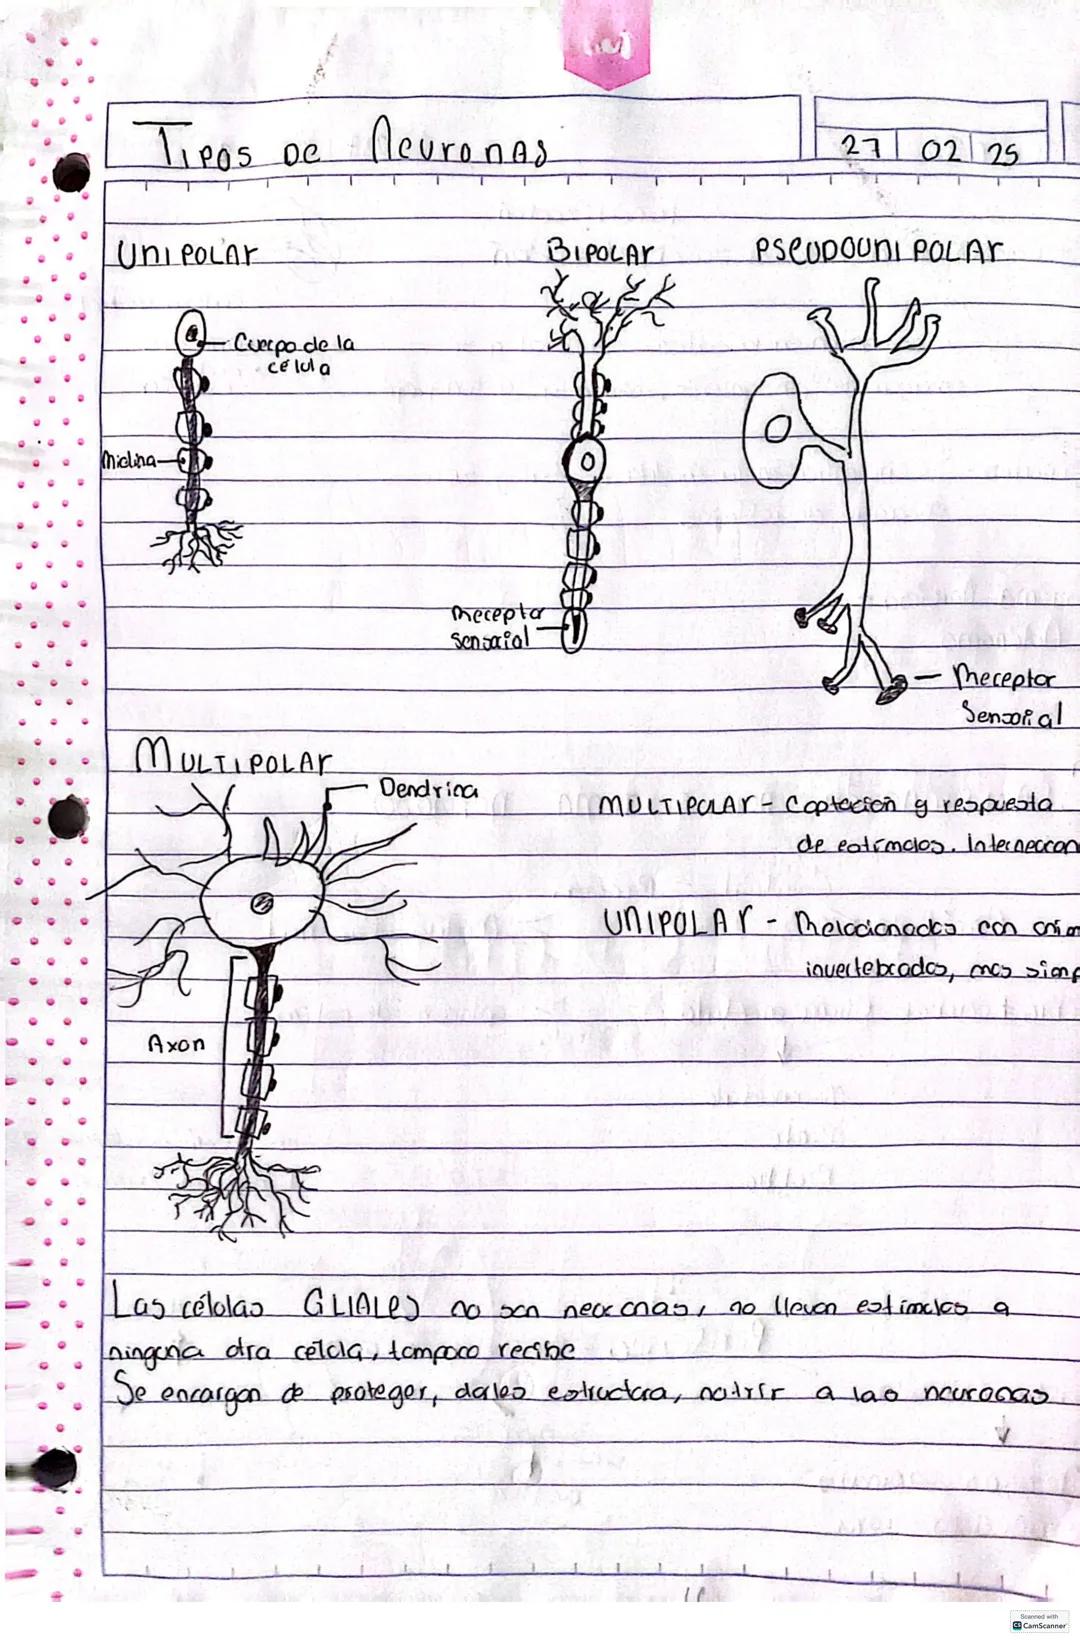 Tipos de Neuronas
27 02 25
UNIPOLAR
BIPOLAR
PSEUDOUNIPOLAR
Cuerpo de la
célula
Mielina
Receptor
Sensorial
Receptor
Sensorial
MULTIPOLAR
Dendrina
MULTIPOLAR - Captación y respuesta
de estímulos. Interneuron
UNIPOLAR - Relacionados con anim
invertebrados, mas simp
Axon
Las células GLIALES no son neuronas, no llevan estimulos a
ninguna otra célula, tampoco recibe
Se encargan de proteger, darles estructura, nutrir a las neuronas
Scanned with
CS CamScanner